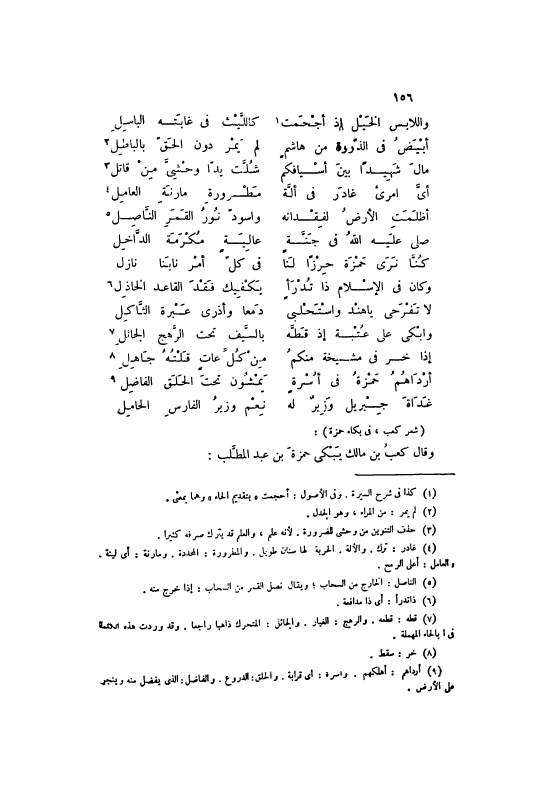 ١٥٦
واللابس الخَيْل إذ أجْحَمت١ كاللَّيْث فى غابَتــه الباسِلِ
أبْيَضُ فى الذّروة من هاشمٍ لم يَمْرِ دون الحَقّ بالباطِلِ٢
مالَ شَهِيدًا بينَ أسْيافكم شُلَّت يدَا وحْشِىِّ مِنْ قاتلِ٣
أىَّ امرئ غادَرَ فى ألَّة مَطْرورة مارنَةِ العامِلِ٤
أظْلَمَتِ الأرضُ لفِقْدانه واسودّ نُورُ القَمَرِ النَّاصِلِ٥
صلى عليَه اللهُ فى جَنَّةٍ عاليَةٍ مُكْرَمَة الدَّاخِلِ
كُنَّا نَرَى حَمْزة حِرْزًا لنَا فى كلّ أمْرٍ نابَنا نازلِ
وكان فى الإسْلام ذا تُدْرَأٍ يَكْفيك فَقْدَ القاعد الخاذلِ٦
لا تَفْرَحى ياهِنْد واسْتَحْلبى دَمعا وأذرى عَبْرة الثَّاكلِ
وابْكى على عُتْبة إذ قَطَّه بالسَّيف تحت الرَّهج الجائلِ٧
إذا خرّ فى مشْيخة منكمُ مِن كُلّ عاتٍ قلْبُهُ جَاهِلِ٨
أرْدَاهُمُ حَمْزةُ فى أُسْرةٍ يَمْشُون تحتَ الحَلَق الفاضلِ٩
غَدَاةَ جِبْريل وَزِيرٌ له نِعْمَ وزيرُ الفارسِ الحاملِ
( شعر كعب ، فى بكاء حمزة ) :
وقال كعبُ بن مالك يَبْكى حمزةَ بن عبد المطَّلب :
(١) كذا فى شرح السيرة . وفى الأصول : أحجمت « بتقديم الحاء » وهما بمعنى .
(٢) لم يمر : من المراء ، وهو الجدل .
(٣) حذف التنوين من وحشى للضرورة . لأنه علم ، والعلم قد يترك صرفه كثيرا .
(٤) غادر : ترك . والألة . الحربة لها سنان طويل . والمطرورة : المحددة . ومارنة : أى لينة .
والعامل : أعلى الرمح .
(٥) الناصل : الخارج من السحاب ؛ ويقال نصل القمر من السحاب : إذا خرج منه .
(٦) ذاتدرأ : أى ذا مدافعة .
(٧) قطه : قطعه . والرهج : الغبار . والجائل : المتحرك ذاهبا راجعا . وقد وردت هذه الكلمة
فى ا بالحاء المهملة .
(٨) خر : سقط .
(٩) أرداهم : أهلكهم . واسرة : أى قرابة . والحلق : الدروع . والفاضل : الذى يفضل منه وينجر
على الأرض .